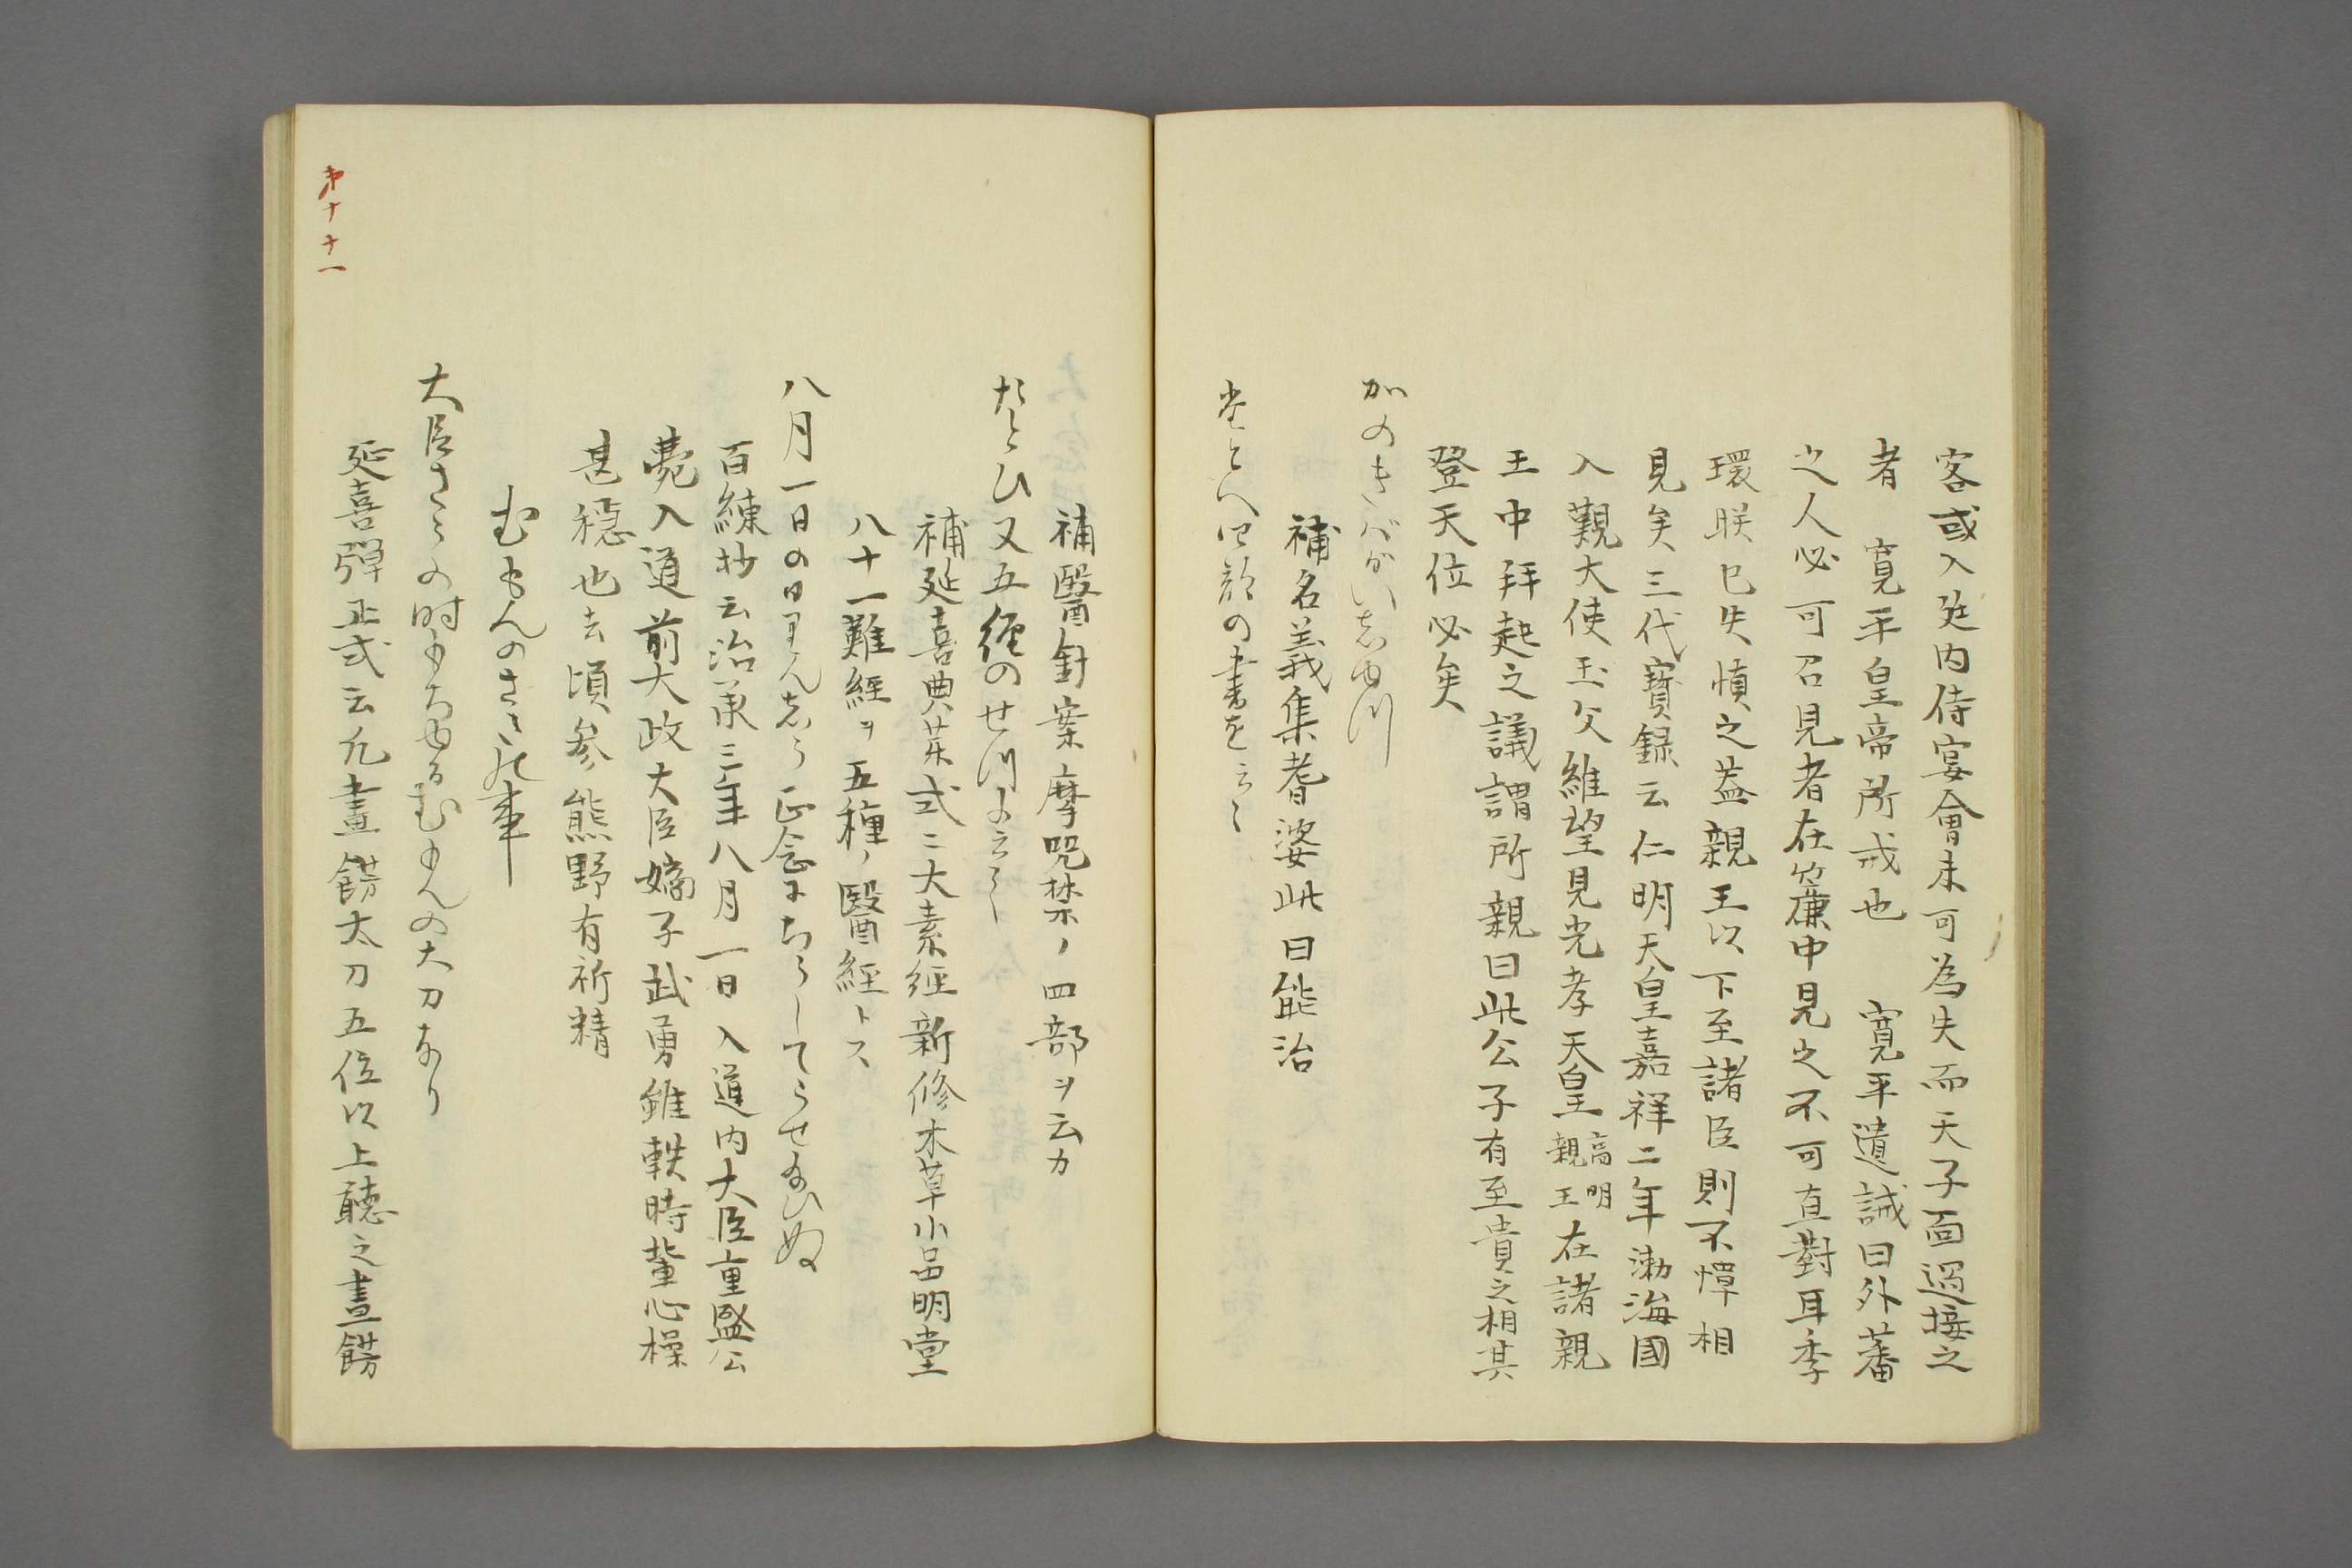 客或入廷内侍宴會未可為失而天子面遏接之
者　寛平皇帝所戒也　寛平遺誡曰外蕃
之人必可召見者在簾中見之不可直對耳季
環朕已失慎之蓋親王以下至諸臣則不憚相
見矣三代寳録云仁明天皇嘉祥二年渤海國
入覲大使王文維望見光孝天皇
高明
親王
在諸親
王中拜起之議謂所親曰此公子有至貴之相其
登天位必矣
かのきばがい
補名義集耆婆此曰能治
の書を云々
補醫針案摩咒禁ノ四部ヲ云カ
たとひ又五經のせつに云々
補延喜典藥式ニ大素經新修本草小品明堂
八十一難經ヲ五種ノ醫經トス
八月一日の日りんじう正念にぢうしてうせ給ひぬ
百練抄云治承三年八月一日入道内大臣重盛公
薨入道前大政大臣嫡子武勇雖軼時輩心操
甚穏也去頃参熊野有祈精
むもんのさた事
大臣さうの時もちゆるむもんの大刀なり
延喜彈正式云凡畫餝太刀五位以上聴之畫餝
第十 十一